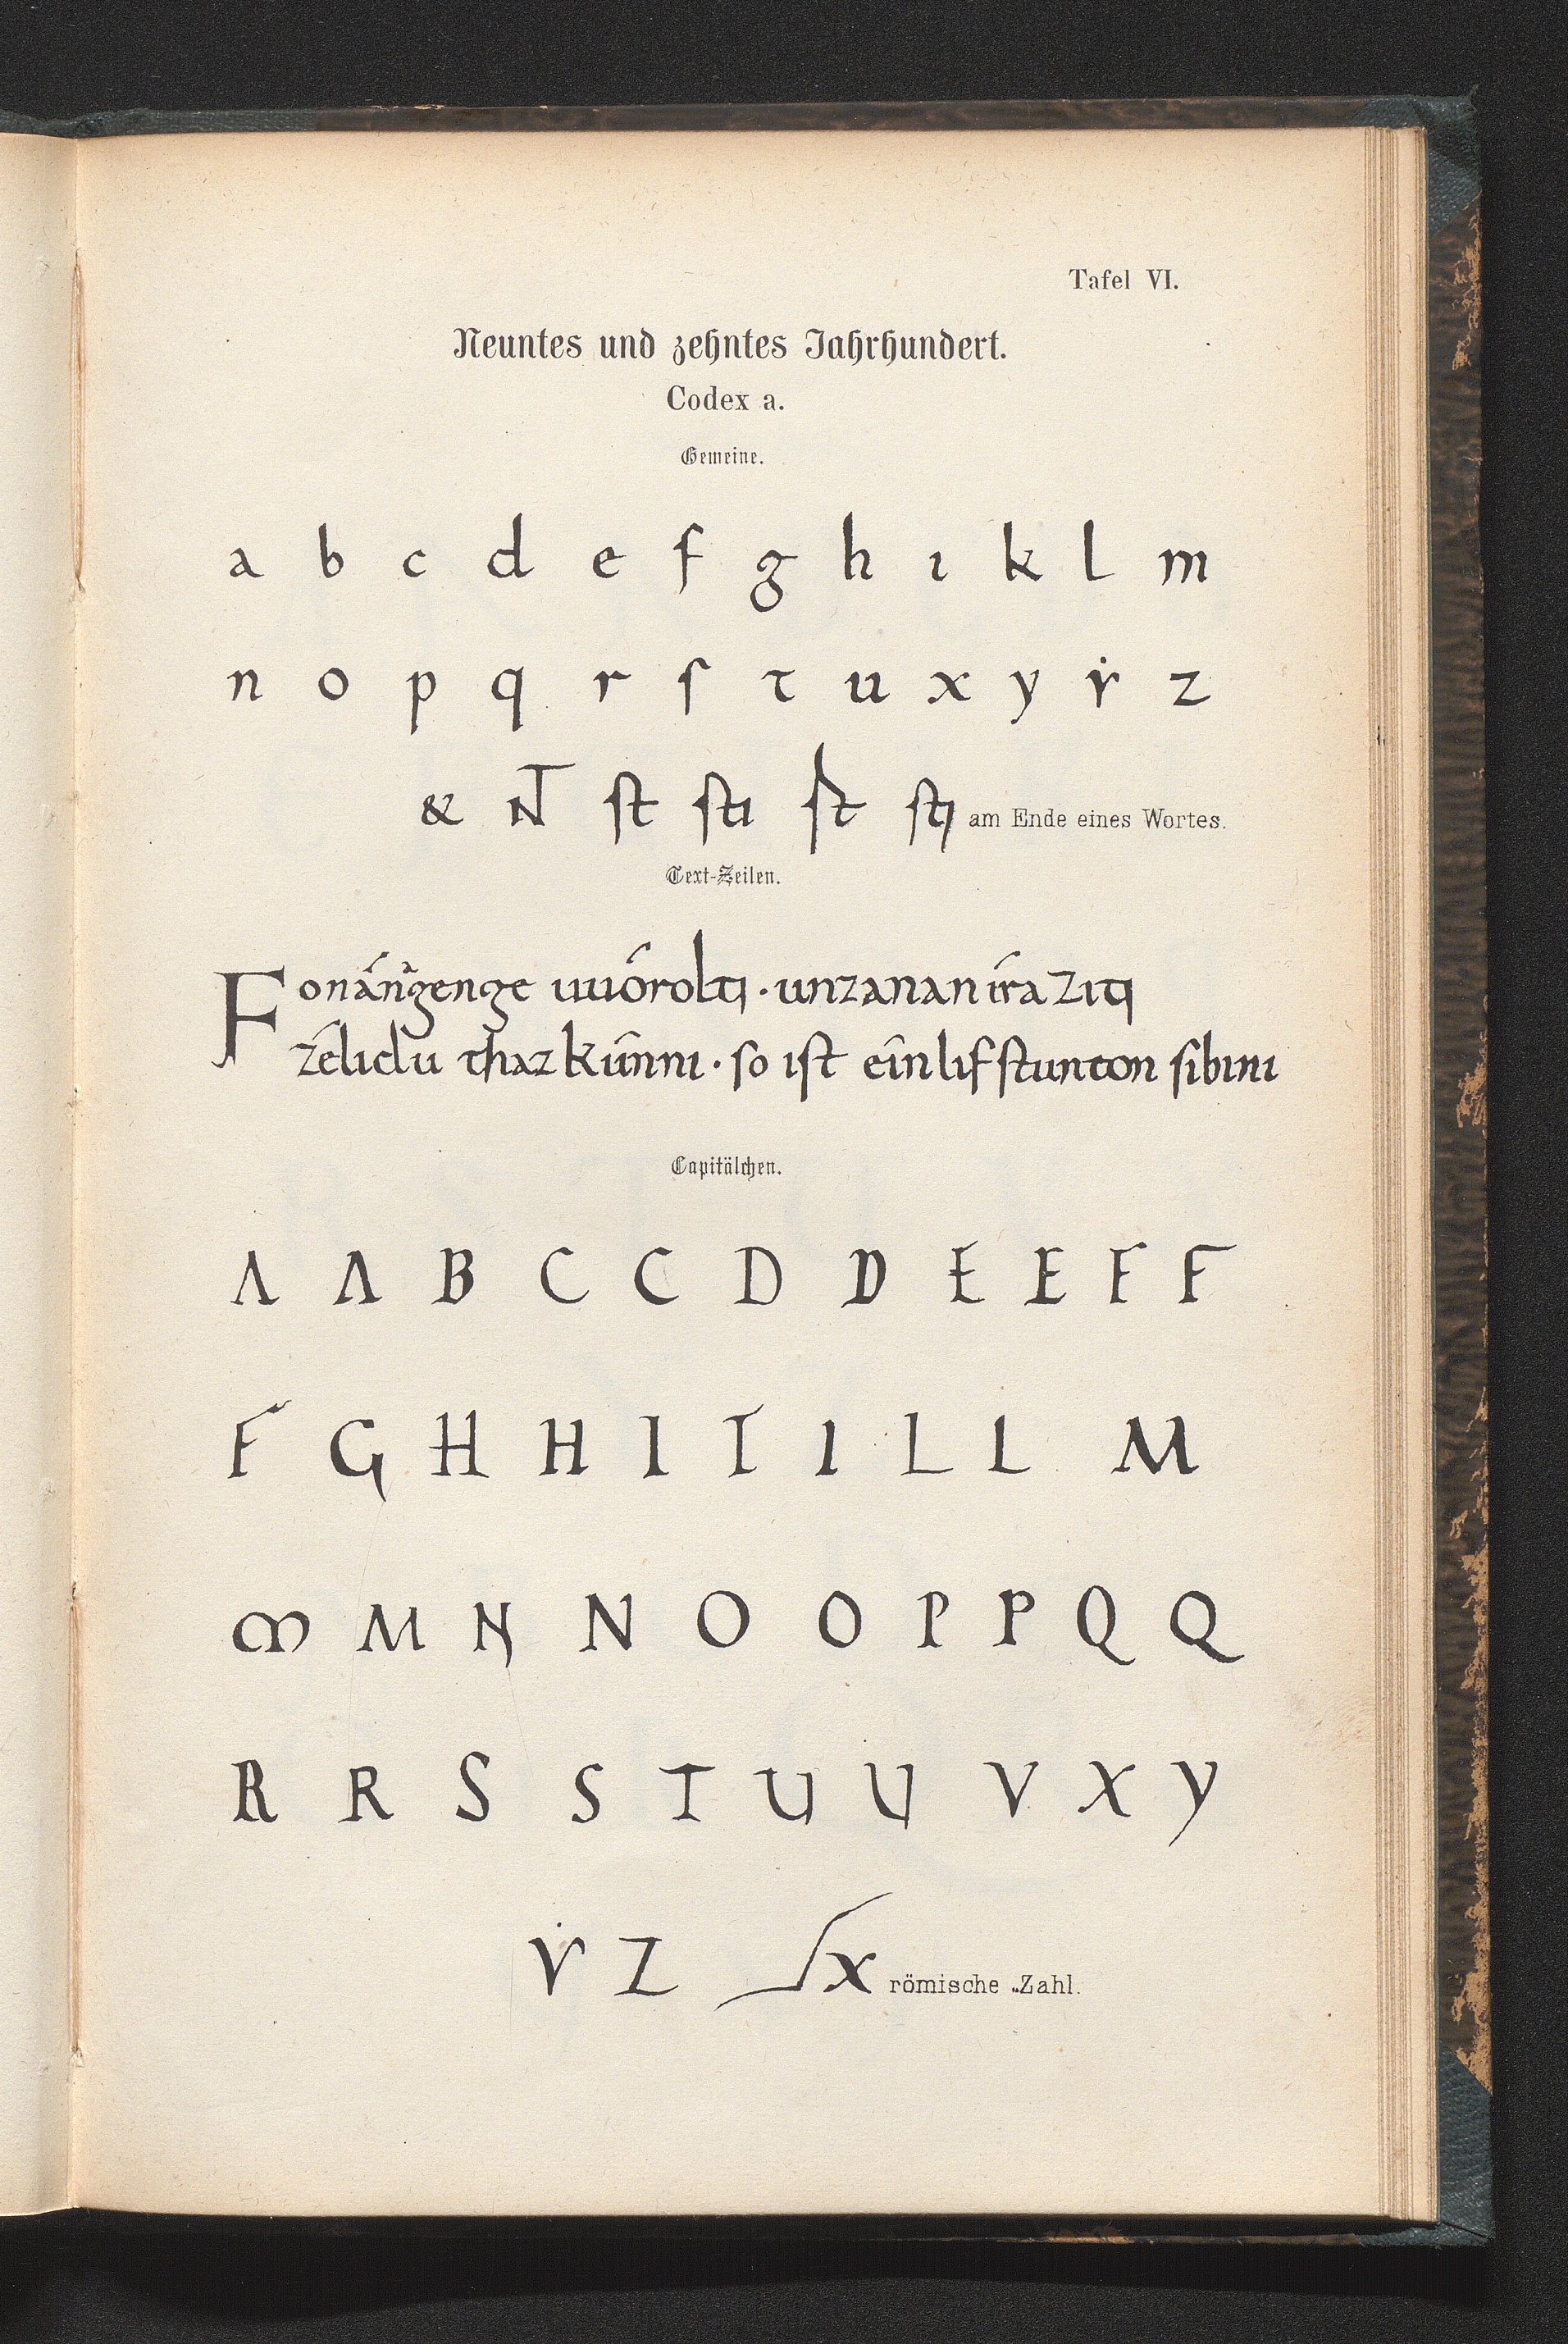 Tafel VI.
Neuntes und zehntes Jahrhundert.
Codex a.
Gemeine.
a b c d e f g h ı k l m
n o p q r ſ t u x y ẏ z
& NT ſt ſti ſt ſti am Ende eines Wortes.
Text-Zeilen.
Fonángenge uuórolti · unzanan íra ziti
zélidu thaz kúnni · ſo iſt éinlif ſtunton ſibini
Capitälchen.
A A B C C D D E E F F
F G H H I I I L L M
M M N N O O P P Q Q
R R S S T U U V X Y
Ẏ Z LX römische Zahl.